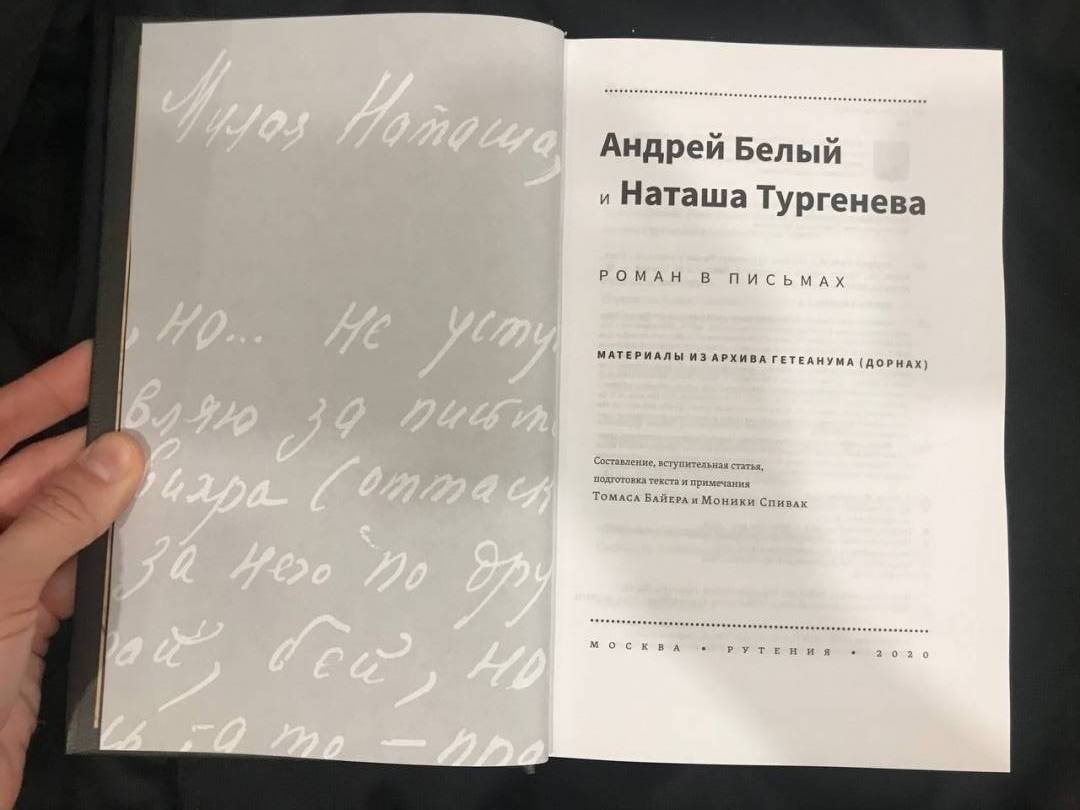 Милая Наташа,
, но... не усту
вляю за письм
вихра (оттаск
за него по дру
рай, бей, но
сь за то – пра
Андрей Белый
и Наташа Тургенева
РОМАН В ПИСЬМАХ
МАТЕРИАЛЫ ИЗ АРХИВА ГЕТЕАНУМА (ДОРНАХ)
Составление, вступительная статья,
подготовка текста и примечания
Томаса Байера и Моники Спивак
МОСКВА • РУТЕНИЯ • 2020